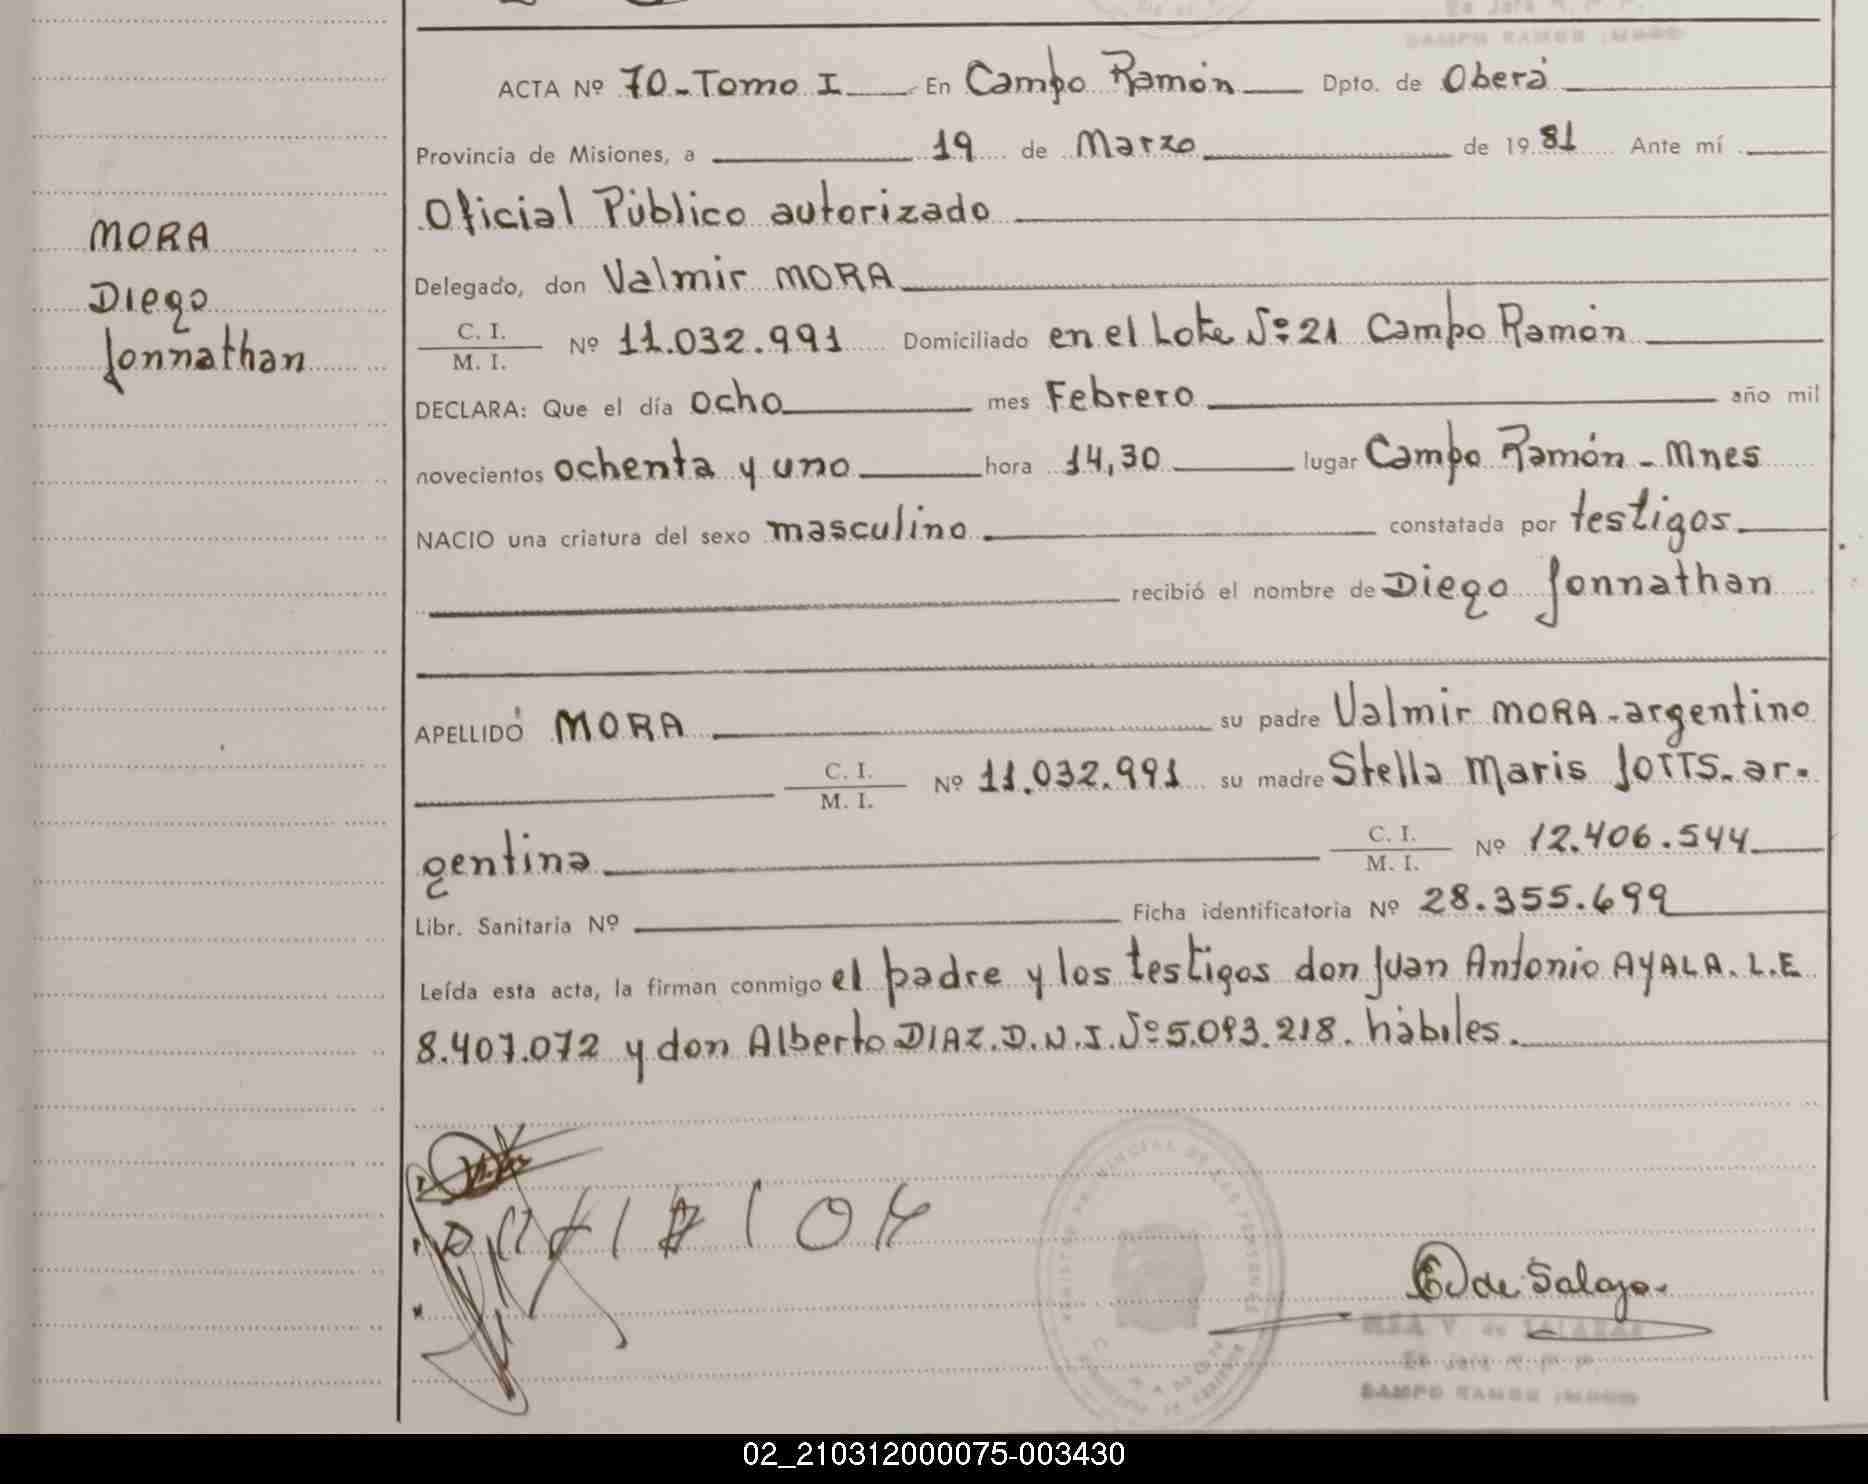 ACTA Nº 70-Tomo I En Campo Ramón Dpto. de Oberá
Provincia de Misiones, a 19 de Marzo de 1981 Ante mí
Oficial Público autorizado
MORA
Diego
Jonnathan
Delegado, don Valmir MORA
C. I.
M. I. Nº 11.032.991 Domiciliado en el Lote Nº 21 Campo Ramón
DECLARA: Que el día ocho mes Febrero año mil
novecientos ochenta y uno hora 14,30 lugar Campo Ramón - Mnes
NACIO una criatura del sexo masculino constatada por testigos
recibió el nombre de Diego Jonnathan
APELLIDO MORA su padre Valmir MORA-argentino
C. I.
M. I. Nº 11.032.991 su madre Stella Maris JOTTS-ar-
gentina C. I.
M. I. Nº 12.406.544
Libr. Sanitaria Nº Ficha identificatoria Nº 28.355.699
Leída esta acta, la firman conmigo el padre y los testigos don Juan Antonio AYALA. L.E
8.407.072 y don Alberto DIAZ. D.N.I. Nº 5.093.218. hábiles.
E de Salazar
CAMPO RAMON
02_210312000075-003430